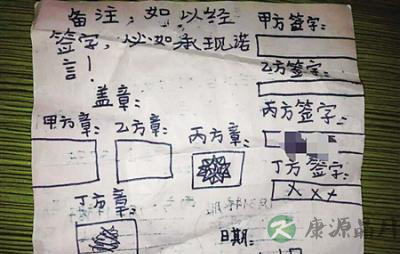 备注，如以经
签字，必如承现诺
言！
盖章：
甲方章：
乙方章：
丙方章：
丁方章：
甲方签字：
乙方签字：
丙方签字：
丁方签字：
xxx
日期：